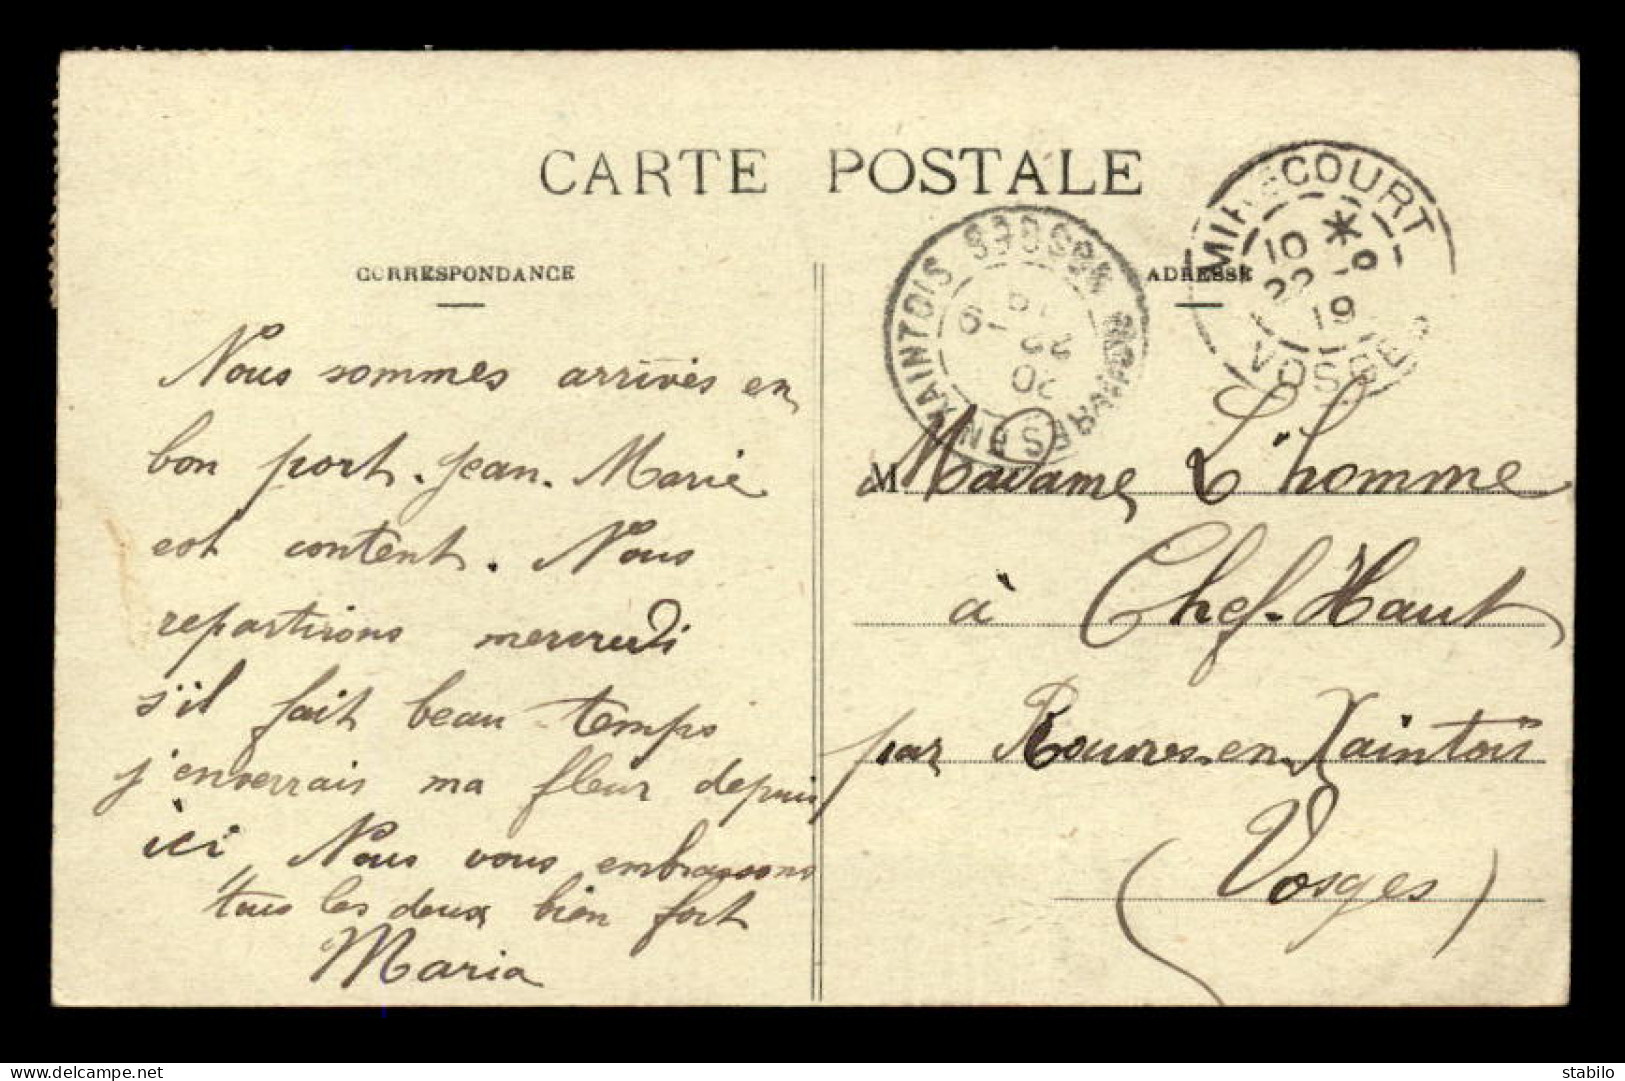 CARTE POSTALE
CORRESPONDANCE
Nous sommes arrivés en
bon port. Jean-Marie
est content. Nous
repartirons mercredi
s'il fait beau temps
j'enverrais ma fleur depuis
ici, Nous vous embrassons
tous les deux bien fort
Maria
ADRESSE
MIRECOURT
10 * 9
22
19
VOSGES
ROUVRES EN XAINTOIS VOSGES
20
22 - 9
19
M Madame L'homme
à Chef-Haut
par Rouvres-en-Xaintois
(Vosges)
delcampe.net
stabilo